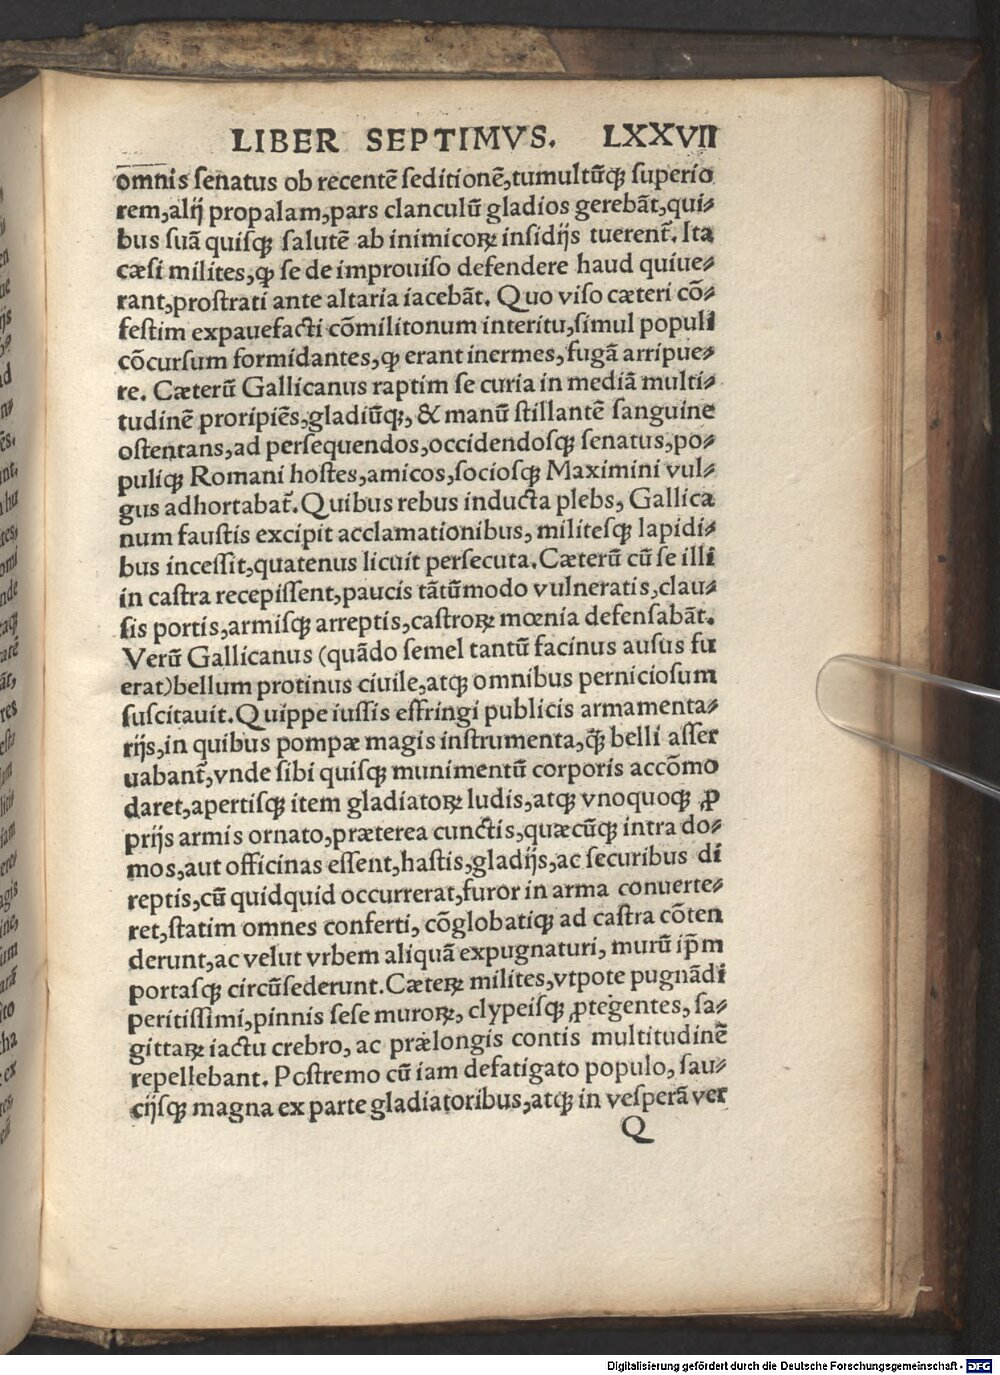 LIBER SEPTIMVS. LXXVII
omnis ſenatus ob recentē ſeditionē,tumultūq; ſuperio
rem,alij propalam,pars clanculū gladios gerebāt,qui⸗
bus ſuā quiſq; ſalutē ab inimicoꝝ inſidijs tuerent̃. Ita
cæſi milites,ꝙ ſe de improuiſo defendere haud quiue⸗
rant,proſtrati ante altaria iacebāt. Quo viſo cæteri cō⸗
feſtim expauefacti cōmilitonum interitu,ſimul populi
cōcurſum formidantes,ꝙ erant inermes,fugā arripue⸗
re. Cæterū Gallicanus raptim ſe curia in mediā multi⸗
tudinē proripiēs,gladiūq;, & manū ſtillantē ſanguine
oſtentans,ad perſequendos,occidendoſq; ſenatus,po⸗
puliq; Romani hoſtes,amicos,ſocioſq; Maximini vul⸗
gus adhortabat̃. Quibus rebus inducta plebs, Gallica
num fauſtis excipit acclamationibus, militeſq; lapidi⸗
bus inceſſit,quatenus licuit perſecuta. Cæterū cū ſe illi
in caſtra recepiſſent,paucis tātūmodo vulneratis,clau⸗
ſis portis,armiſq; arreptis,caſtroꝝ mœnia defenſabāt.
Verū Gallicanus (quādo ſemel tantū facinus auſus fu
erat)bellum protinus ciuile,atq; omnibus pernicioſum
ſuſcitauit. Quippe iuſſis effringi publicis armamenta⸗
rijs,in quibus pompæ magis inſtrumenta,q̃ belli aſſer
uabant̃,vnde ſibi quiſq; munimentū corporis accōmo
daret,apertiſq; item gladiatoꝝ ludis,atq; vnoquoq; ꝓ
prijs armis ornato,præterea cunctis,quæcūq; intra do⸗
mos,aut officinas eſſent,haſtis,gladijs,ac ſecuribus di
reptis,cū quidquid occurrerat,furor in arma conuerte⸗
ret,ſtatim omnes conferti, cōglobatiq; ad caſtra cōten
derunt,ac velut vrbem aliquā expugnaturi, murū ip̄m
portaſq; circūſederunt. Cæteꝝ milites,vtpote pugnādi
peritiſſimi,pinnis ſeſe muroꝝ, clypeiſq; ꝓtegentes, ſa⸗
gittaꝝ iactu crebro, ac prælongis contis multitudinē
repellebant. Poſtremo cū iam defatigato populo, ſau⸗
cijſq; magna ex parte gladiatoribus,atq; in veſperā ver
Q
Digitalisierung gefördert durch die Deutsche Forschungsgemeinschaft - DFG